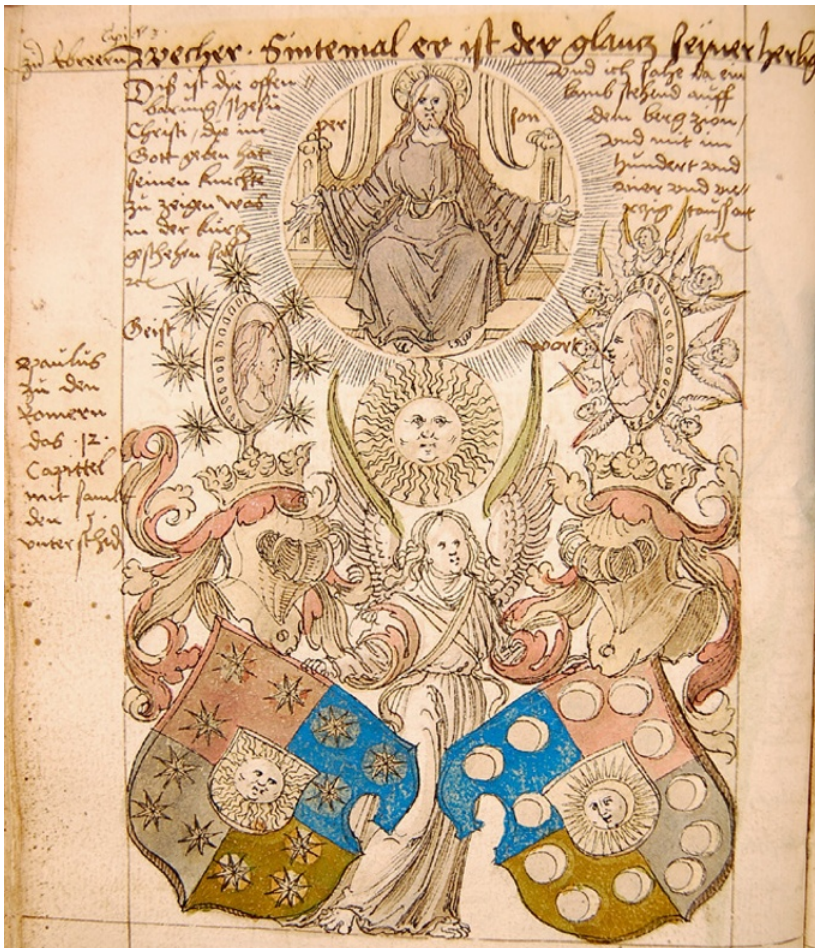 Capit 3.
zu Ebreern
wecher. Sintemal er ist der glantz seyner herlig
Diß ist die offen
barung Jhesu
Christi / die im
Gott geben hat
seinen knechte
zu zeigen was
in der kürtz
geschehen sol
rc
per
son
Und ich sahe da ein
lamb stehend auff
dem berg zion /
und mit im
hundert und
vier und vier
rc
Geist
wort
paulus
zu den
Romern
das .12.
Capittel
mit sampt
den
unterschid